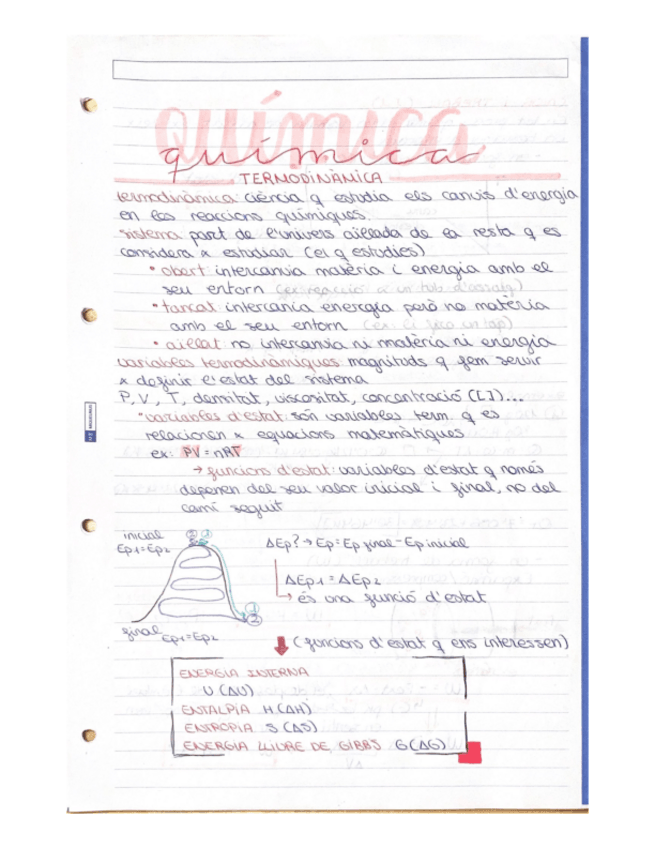 química
química
TERMODINÀMICA
termodinàmica: ciència q estudia els canvis d'energia
en les reaccions químiques.
sistema: part de l'univers aïllada de la resta q es
considera x estudiar (el q estudies)
• obert: intercanvia matèria i energia amb el
seu entorn (ex: reacció a un tub d'assaig)
• tancat: intercanvia energia però no matèria
amb el seu entorn (ex: li fico un tap)
• aïllat: no intercanvia ni matèria ni energia
variables termodinàmiques: magnituds q fem servir
x definir l'estat del sistema
P, V, T, densitat, viscositat, concentració ([])...
• variables d'estat: són variables term. q es
relacionen x equacions matemàtiques
ex: PV = nRT
→ funcions d'estat: variables d'estat q només
depenen del seu valor inicial i final, no del
camí seguit
inicial
Ep1=Ep2
② ①
ΔEp? → Ep = Ep final - Ep inicial
ΔEp1 = ΔEp2
→ és una funció d'estat
①
②
final Ep1=Ep2
(funcions d'estat q ens interessen)
ENERGIA INTERNA
U (ΔU)
ENTALPIA H (ΔH)
ENTROPIA S (ΔS)
ENERGIA LLIURE DE GIBBS G (ΔG)